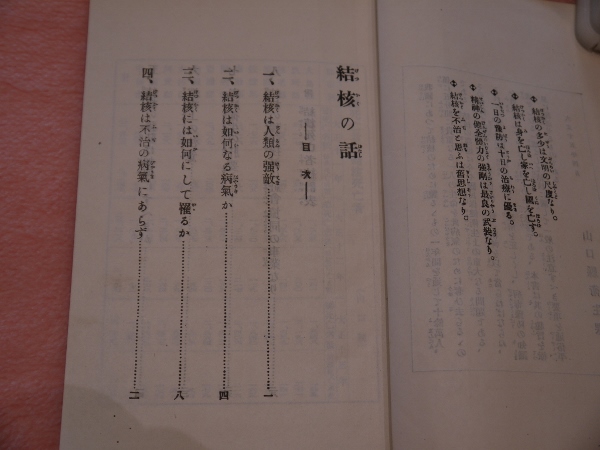 結核の多少は文明の尺度なり。
結核は身を亡し家を亡し國を亡す。
一日の豫防は十日の治療に優る。
精神の健全勢力の強剛は最良の武裝なり。
結核を不治と思ふは舊思想なり。
結核の話
目次
一、結核は人類の强敵 一
二、結核は如何なる病氣か 四
三、結核には如何にして罹るか 八
四、結核は不治の病氣にあらず 一二